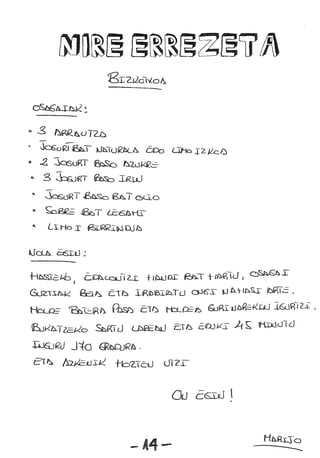 NIRE ERREZETA
BIZKOTXOA
OSAGAIAK:
• 3 ARRAUTZA
• JOGURT BAT NATURALA EDO LIMOIZKOA
• 2 JOGURT BASO AZUKRE
• 3 JOGURT BASO IRIN
• JOGURT BASO BAT OLIO
• SOBRE BAT LEGAMI
• LIMOI BIRRINDUA
NOLA EGIN:
HASTEKO, EDALONTZI HANDI BAT HARTU, OSAGAI
GUZTIAK BOTA ETA IRABIATU ONGI NAHASI ARTE.
MOLDE BATERA PASA ETA MOLDEA GURINAREKIN IGURTZI.
BUKATZEKO SARTU LABEAN ETA EDUKI 45 MINUTU
INGURU 170 GRADURA.
ETA AZKENIK HOZTEN UTZI
ON EGIN!
MARIJO
-14-